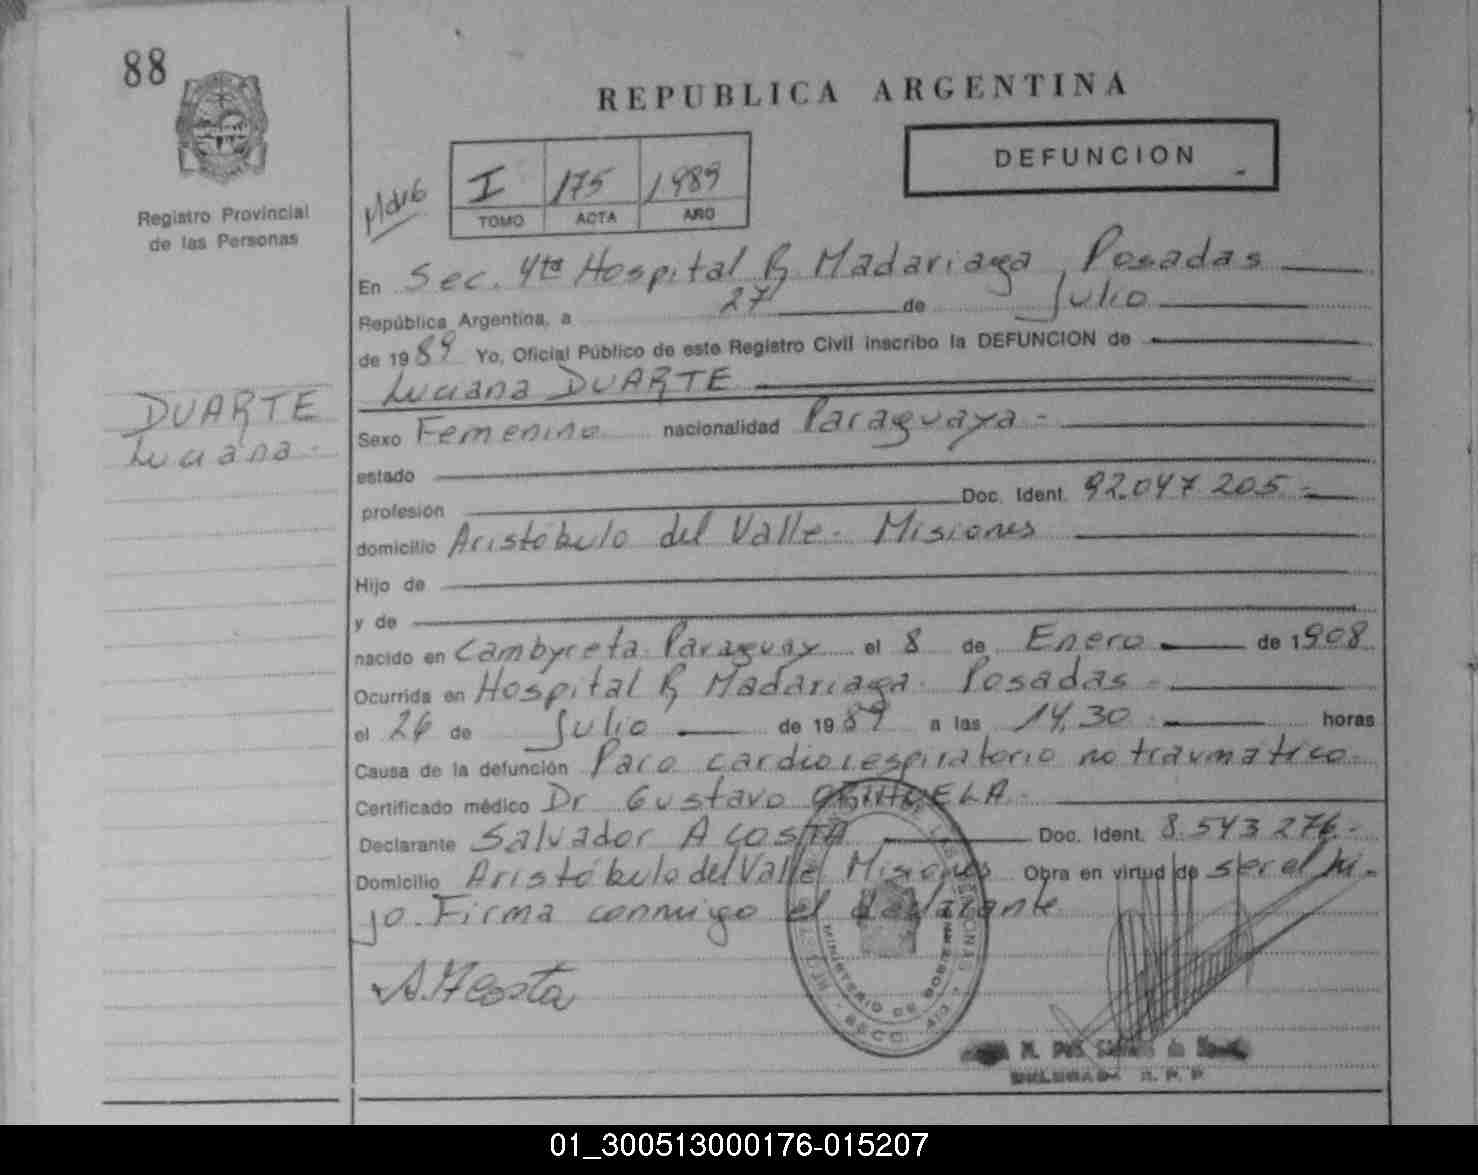 88
REPUBLICA ARGENTINA
DEFUNCION
I 175 1989
TOMO ACTA AÑO
Registro Provincial
de las Personas
En Sec. 4ta Hospital R Madariaga, Posadas
República Argentina, a 27 de Julio
de 1989 Yo, Oficial Público de este Registro Civil inscribo la DEFUNCION de
Luciana DUARTE
DUARTE
Luciana
Sexo Femenino nacionalidad Paraguaya
estado
profesión Doc. Ident. 92.047.205
domicilio Aristóbulo del Valle - Misiones
Hijo de
y de
nacido en Cambyreta Paraguay el 8 de Enero de 1908
Ocurrida en Hospital R Madariaga - Posadas
el 26 de Julio de 1989 a las 14,30 horas
Causa de la defunción Paro cardiorespiratorio no traumático
Certificado médico Dr Gustavo
Declarante Salvador ACOSTA Doc. Ident. 8.543.276
Domicilio Aristóbulo del Valle Misiones Obra en virtud de ser el hi-
jo. Firma conmigo el declarante
A. Acosta
MINISTERIO DE GOBIERNO
01_300513000176-015207